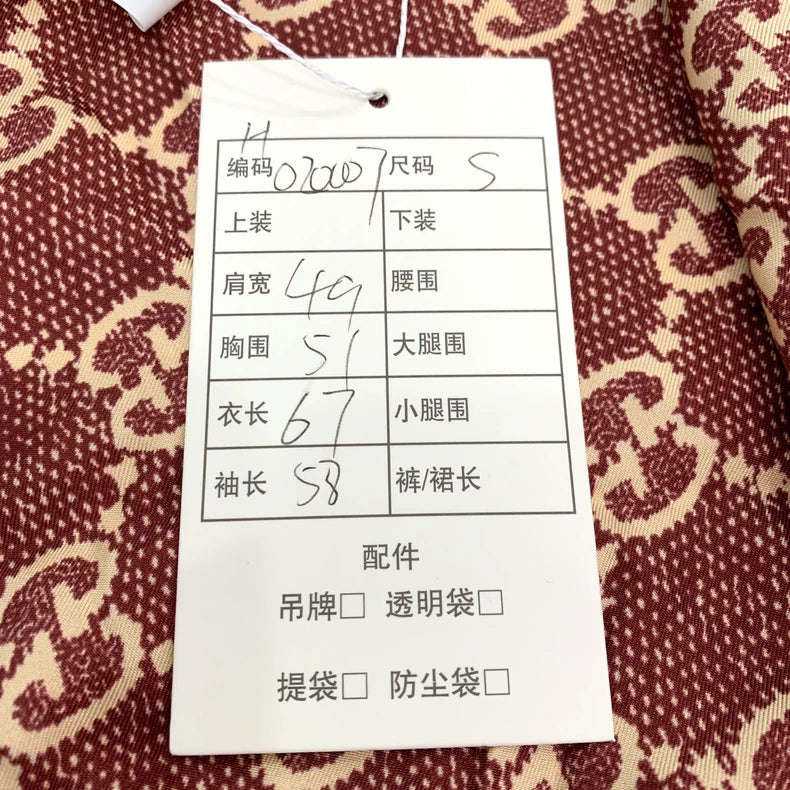 H
编码 020007 尺码 S
上装 下装
肩宽 49 腰围
胸围 51 大腿围
衣长 67 小腿围
袖长 58 裤/裙长
配件
吊牌□ 透明袋□
提袋□ 防尘袋□